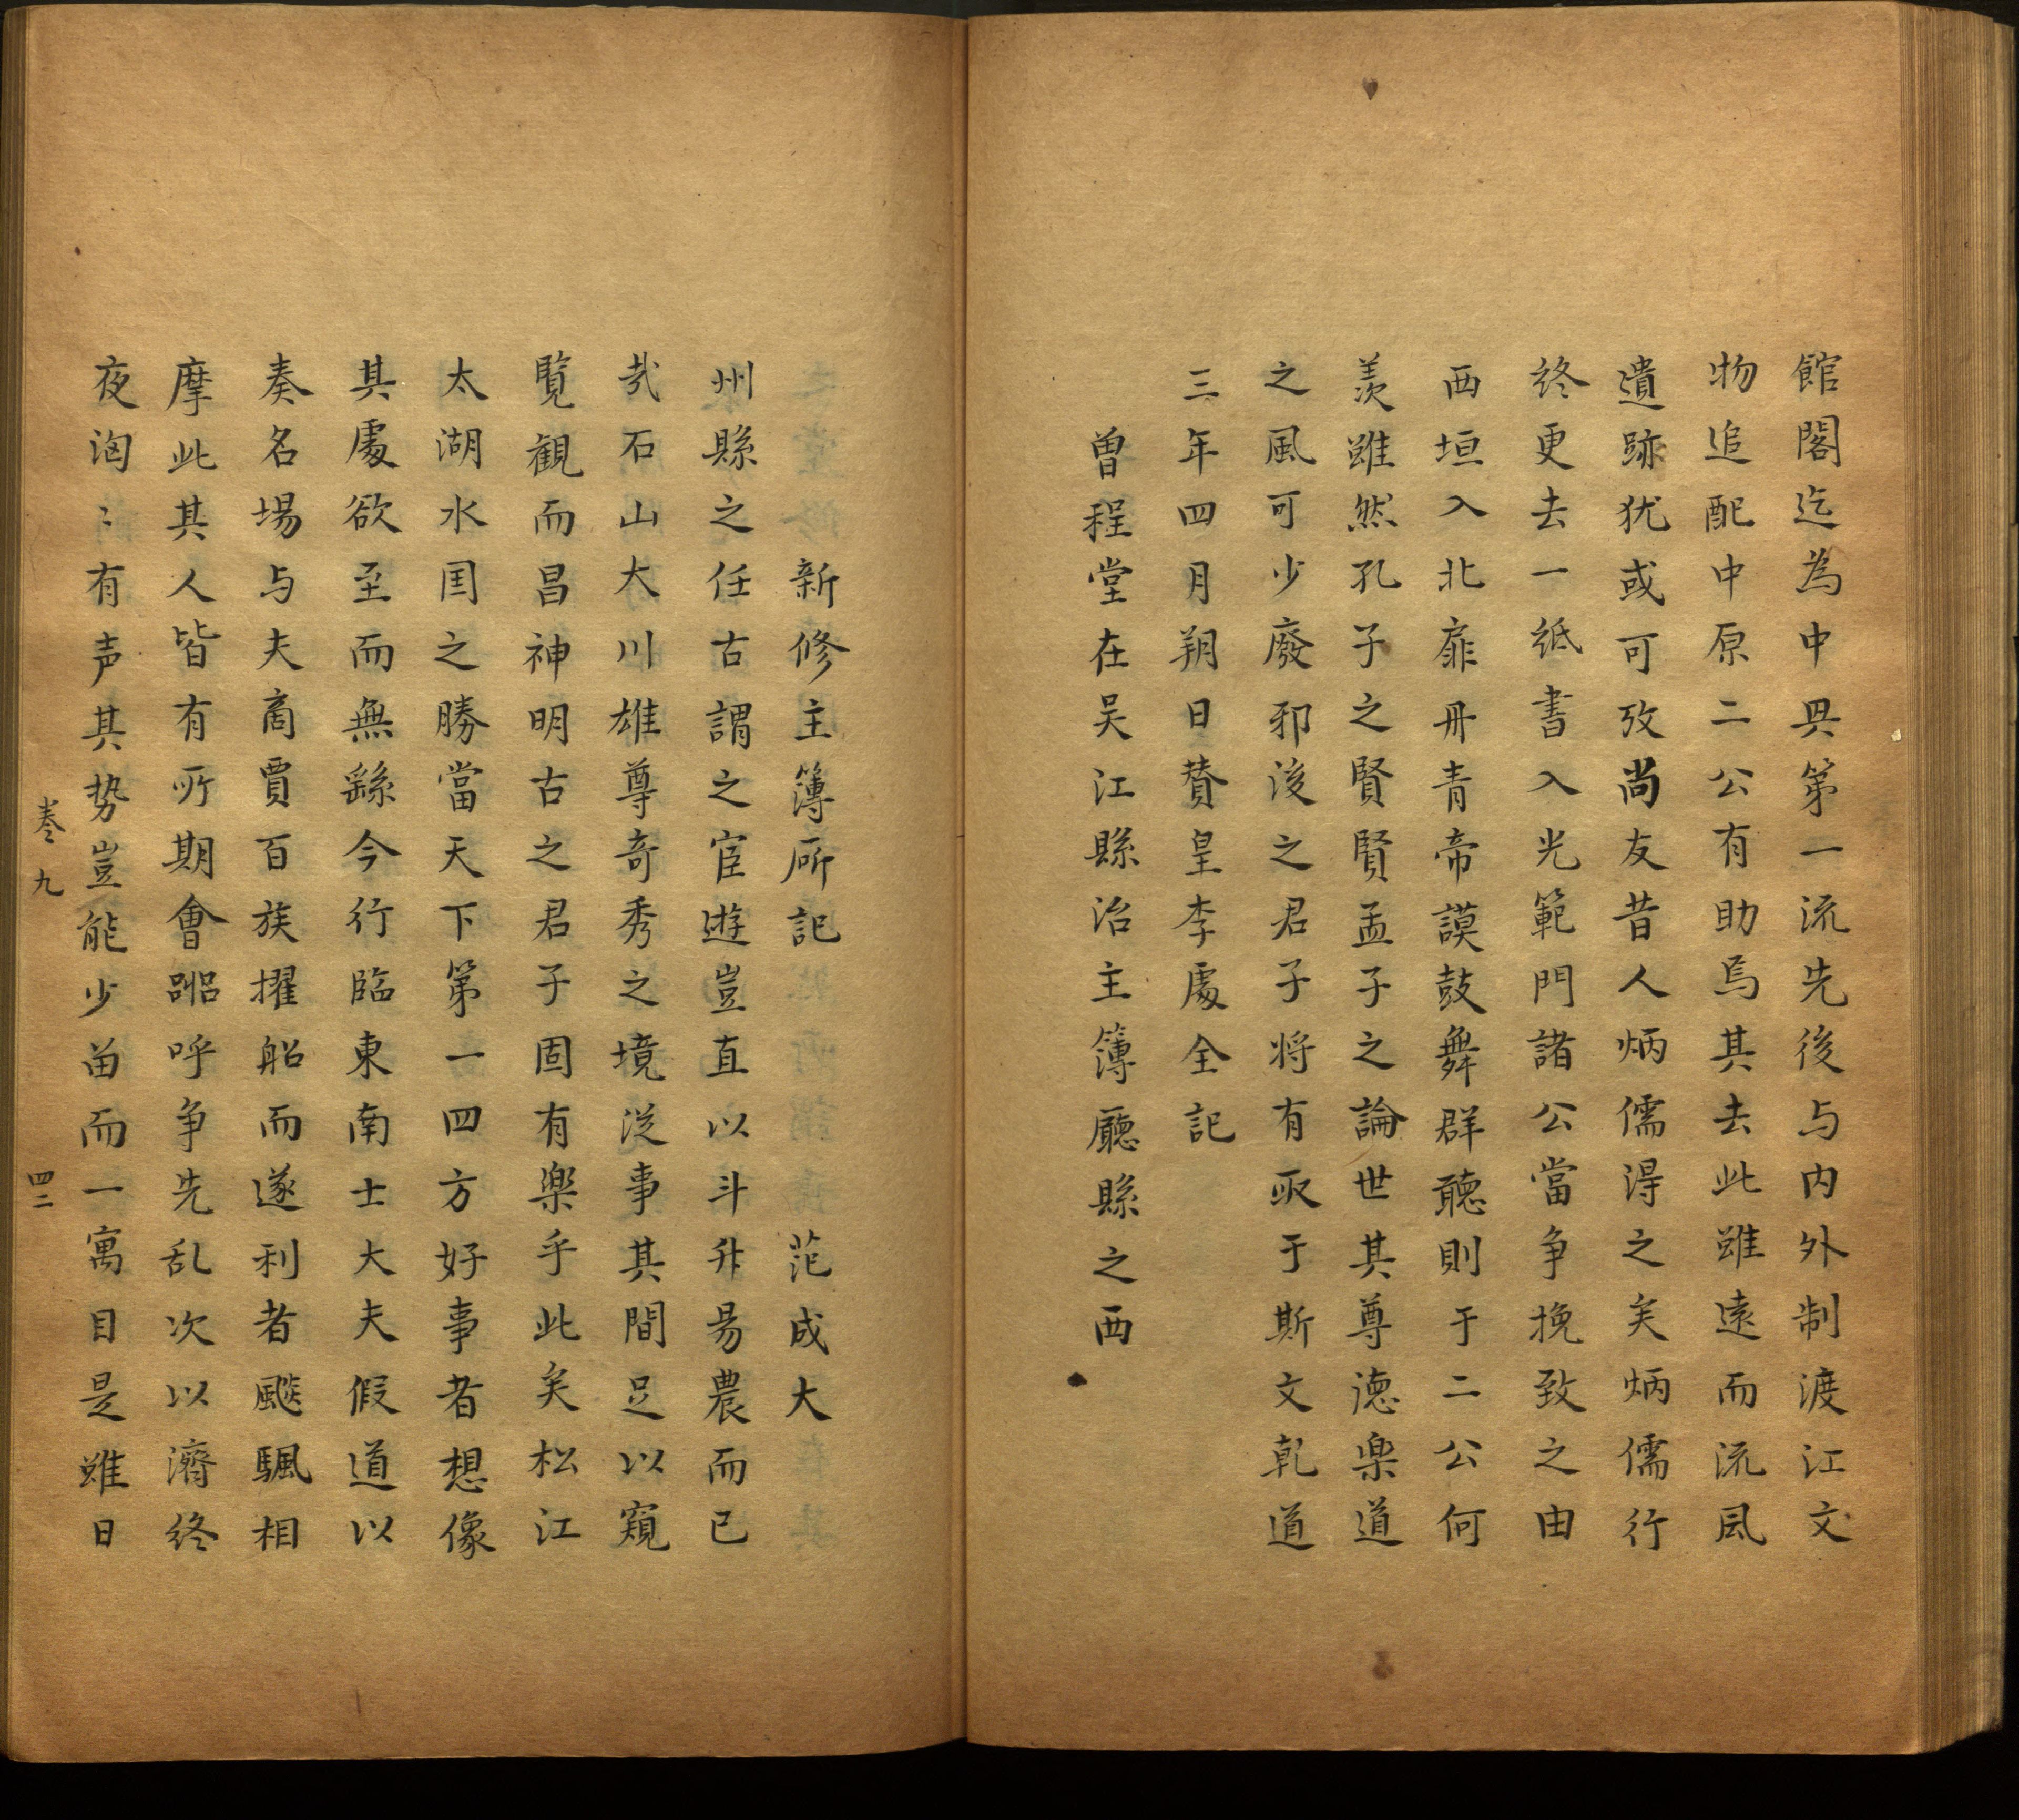 館閣迄為中興第一流先後与内外制渡江文
物追配中原二公有助焉其去此雖遠而流風
遺跡犹或可攷尚友昔人炳儒得之矣炳儒行
終更去一紙書入光範門諸公當争挽致之由
西垣入北扉冊青帝謨鼓舞群聽則于二公何
羡雖然孔子之賢賢孟子之論世其尊德楽道
之風可少廢邪後之君子将有取于斯文乾道
三年四月朔日賛皇李處全記
曽程堂在吴江縣治主簿廳縣之西
新修主簿㕔記　范成大
州縣之任古謂之宦遊豈直以斗升易農而已
㢤石山大川雄尊奇秀之境従事其間足以窺
覧観而昌神明古之君子固有楽乎此矣松江
太湖水囯之勝當天下第一四方好事者想像
其處欲至而無繇今行臨東南士大夫假道以
奏名場与夫商賈百族擢船而遂利者飈颿相
摩此其人皆有所期會嘂呼争先乱次以濟終
夜洶〻有声其势豈能少畄而一寓目是雖日
卷九
四二